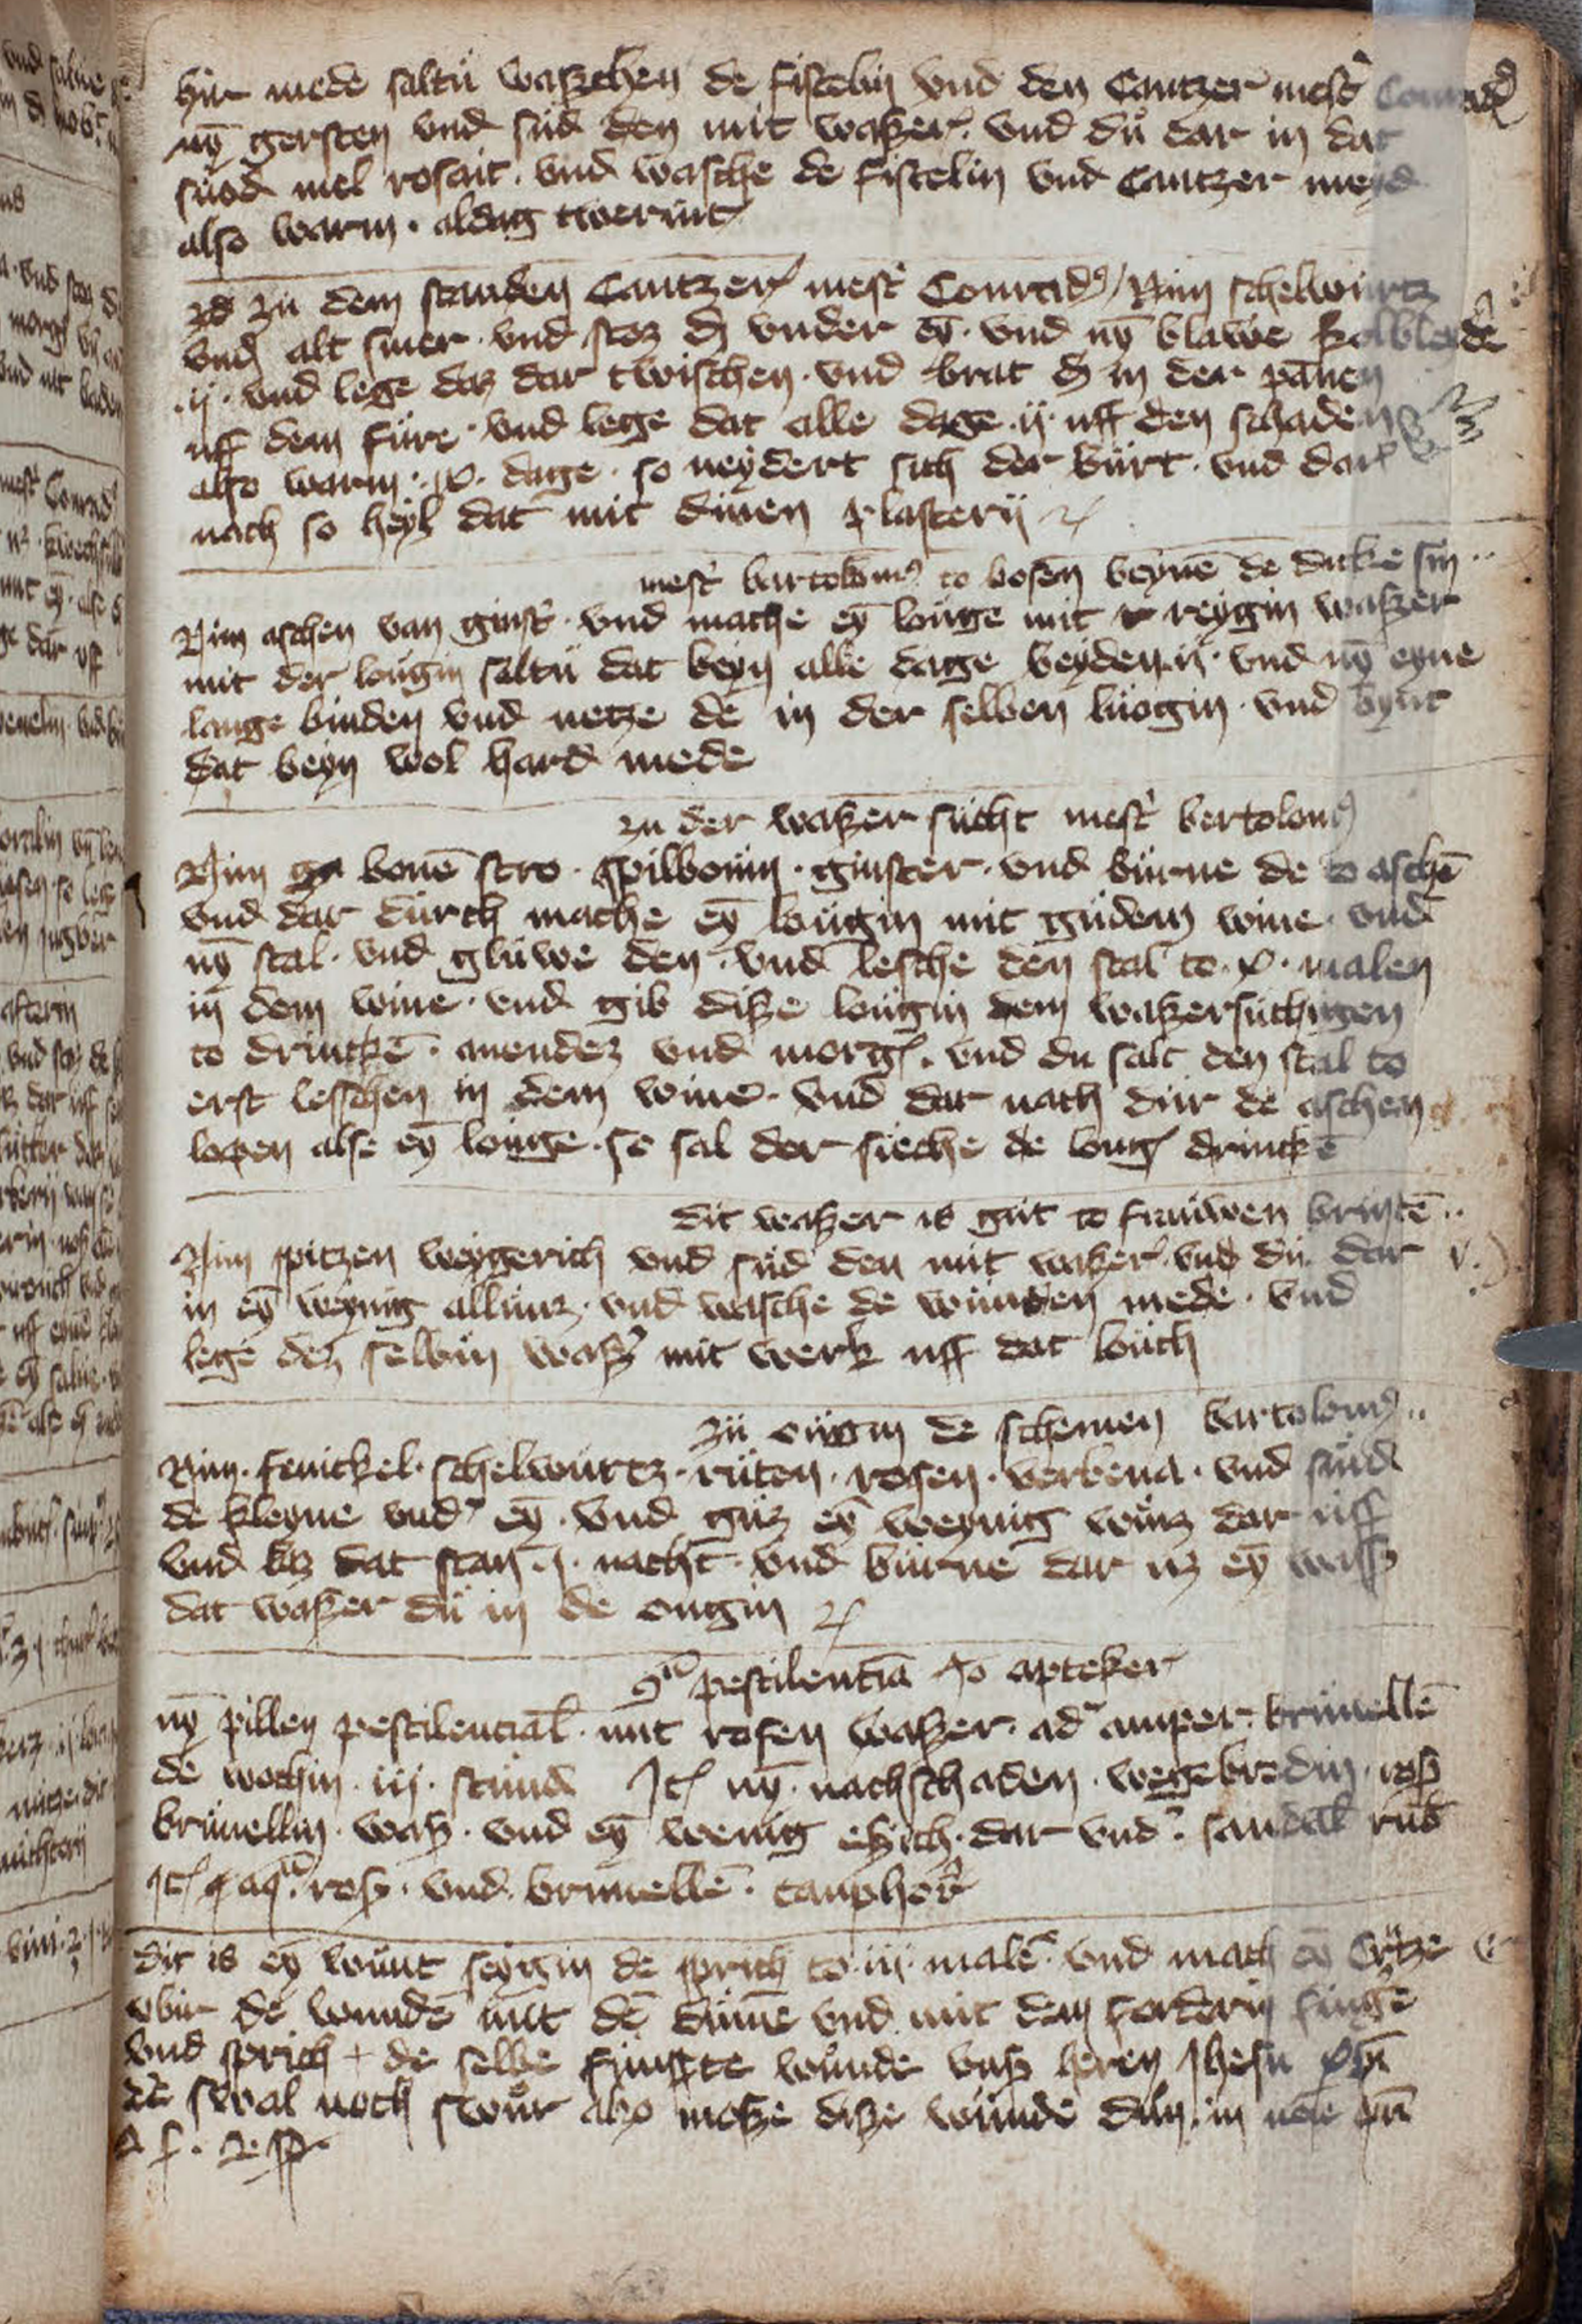 hir mede saltu waßchen de fistelin vnd den Cantzer mestʼ Conradꝰ
nȳ gersten vnd sud den mit waßer. vnd dů dar in dat
suod mel rosait. vnd wasche de fistelin vnd Cantzer meyd
also warm. aldag twerint
zu dem standen Cantzer mestʼ Conradꝰ / Nim schelwurtz
vnd alt smer. vnd stoz vnder eȳ. vnd nȳ blawe
.ij. vnd lege daz dar twischen. vnd brat in der pānen
uff dem fure. vnd lege dat alle dage .ij. uff den schaden
also warm. dage. so neydert sich der burt. vnd dar
nach so heyl dat mit dinen plasterij
mestʼ bartolomꝰ to bosen beynē de dicke sin
Nim aschen van ginstʼ. vnd mache eȳ louge mit reygin waßer
mit der lougin saltu dat beyn alle dage beyden .ij. vnd nȳ eyne
lange binden vnd netze de in der selben luogin. vnd bynt
dat beyn wol hard mede
zu der waßer sucht mestʼ bertolomꝰ
Nim bonē stro. spilboum. ginster. vnd burne de to aschē
vnd dar durch mache eȳ lougin mit gudem wine. vnd
nȳ stal. vnd gluwe den. vnd lesche den stal to .x. malen
in dem wine. vnd gib diße lougin dem waßersuchigen
to drinckē. auendez vnd morg. vnd du salt den stal to
erst lesschen in dem wine. vnd dar nach dur de aschen
lopen alse eȳ louge. so sal der sieche de loug drinckē
dit waßer is gut to frauwen brustē
Nim spitzen weygerich vnd sud den mit waßer. vnd du dar
in eȳ weynig allunz. vnd wasche de wunden mede. vnd
lege dez selbin waßʼ mit werk uff dat loch
zu ougin de schemen bartolomꝰ
Nim. fenickel. schelwurtz. ruten. rosen. verbena. vnd sůid
de kleyne vndʼ eȳ. vnd guz eȳ weynig winz dar uff
vnd laz dat stan .j. nacht. vnd burne dar uz eȳ waßʼ
dat waßer du in de ougin
pestilentiā apteker
nȳ pillen pestilencial. mit rosen waßer. ad amper. brunellē
de wochin .iij. stund Itʼ nȳ. nachschaden. wegebredin. rosʼ
brunellin. waßʼ. vnd eȳ wenig eßich. dar vndʼ. sandalʼ rub
Itʼ aqᵃ. rosʼ. vnd. brunellē. camphorʼ
dit is eȳ wunt seygin de sprich to .iij. malē. vnd mach eȳ Crutze
vbir de wundē mit dē dumē vnd mit dem fordern fingʼe
vnd sprich + de selbe funfte wunde vnsʼ heren Ihesu xpī
de swal noch swůr also moße diße wunde dun. in noīe prī